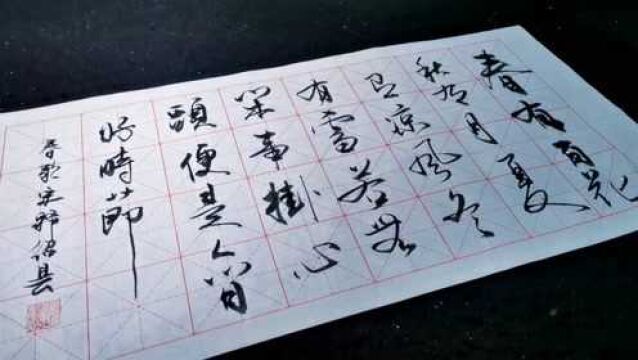 春有百花
秋有月夏
有凉風冬
有雪若無
閑事掛心
頭便是人間
好時節
春歌宋釋紹